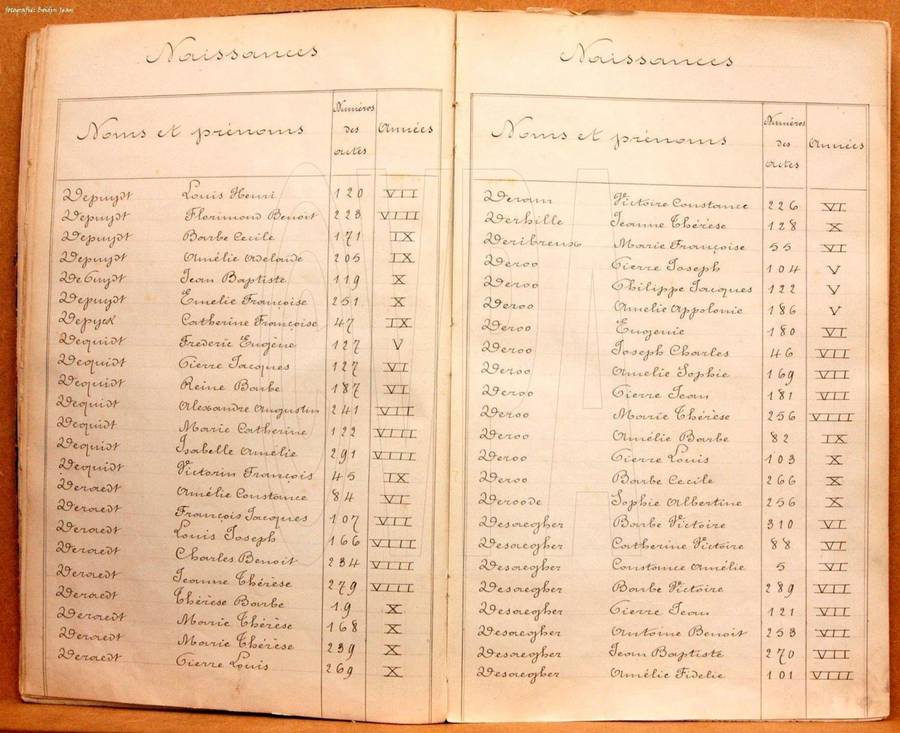 fotografie: Boidin Jean
Naissances
Noms et prénoms Numéros des actes Années
Depuydt Louis Henri 120 VII
Depuydt Florimond Benoit 223 VIII
Depuydt Barbe Cecile 171 IX
Depuydt Amélie Adelaïde 205 IX
Jean Baptiste 119 X
Depuydt Emelie Françoise 251 X
Depyck Catherine Françoise 47 IX
Dequidt Frederic Eugène 127 V
Dequidt Pierre Jacques 127 VI
Dequidt Reine Barbe 187 VI
Dequidt Alexandre Augustin 241 VII
Dequidt Marie Catherine 122 VIII
Dequidt Isabelle Amélie 291 VIII
Dequidt Victorin François 45 IX
Deraedt Amélie Constance 84 VI
Deraedt François Jacques 107 VII
Deraedt Louis Joseph 166 VIII
Deraedt Charles Benoit 234 VIII
Deraedt Jeanne Thérèse 279 VIII
Deraedt Thérèse Barbe 19 X
Deraedt Marie Thérèse 168 X
Deraedt Marie Thérèse 239 X
Deraedt Pierre Louis 269 X
Naissances
Noms et prénoms Numéros des actes Années
Deram Victoire Constance 226 VI
Derhille Jeanne Thérèse 128 X
Deribreux Marie Françoise 55 VI
Deroo Pierre Joseph 104 V
Deroo Philippe Jacques 122 V
Deroo Amelie Appolonie 186 V
Deroo Eugenie 180 VI
Deroo Joseph Charles 46 VII
Deroo Amelie Sophie 169 VII
Deroo Pierre Jean 181 VII
Deroo Marie Thérèse 256 VIII
Deroo Amélie Barbe 82 IX
Deroo Pierre Louis 103 X
Deroo Barbe Cecile 266 X
Deroode Sophie Albertine 256 X
Desaegher Barbe Victoire 310 VI
Desaegher Catherine Victoire 88 VI
Desaegher Constance Amélie 5 VI
Desaegher Barbe Victoire 289 VII
Desaegher Pierre Jean 121 VII
Desaegher Antoine Benoit 253 VII
Desaegher Jean Baptiste 270 VII
Desaegher Amélie Fidelie 101 VIII